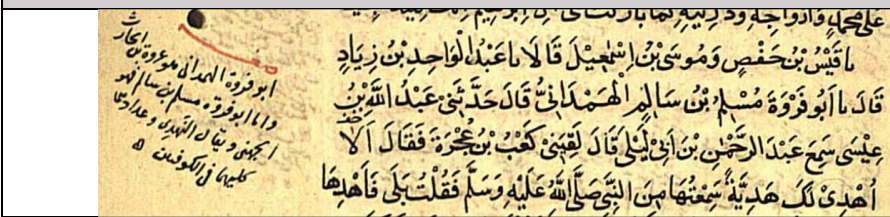 على محمد وازواجه وذريته كما باركت على
نا قَيْسُ بْنُ حَفْصٍ وَمُوسَى بْنُ اِسْمٰعِيْلَ قَالَا نا عَبْدُ الْوَاحِدِ بْنُ زِيَادٍ
قَالَ نا اَبُو فَرْوَةَ مُسْلِمُ بْنُ سَالِمِ الْهَمْدَانِيُّ قَالَ حَدَّثَنِيْ عَبْدُ اللّٰهِ بْنُ
عِيْسَى سَمِعَ عَبْدَ الرَّحْمٰنِ بْنَ اَبِيْ لَيْلٰى قَالَ لَقِيَنِيْ كَعْبُ بْنُ عُجْرَةَ فَقَالَ اَلَا
اُهْدِيْ لَكَ هَدِيَّةً سَمِعْتُهَا مِنَ النَّبِيِّ صَلَّى اللّٰهُ عَلَيْهِ وَسَلَّمَ فَقُلْتُ بَلٰى فَاَهْدِهَا
ابو فروة الهمدانى هو عروة بن الحارث
واما ابو فروة مسلم بن سالم فهو
الجهنى ويقال النهدى وعدادهما
كليهما فى الكوفيين